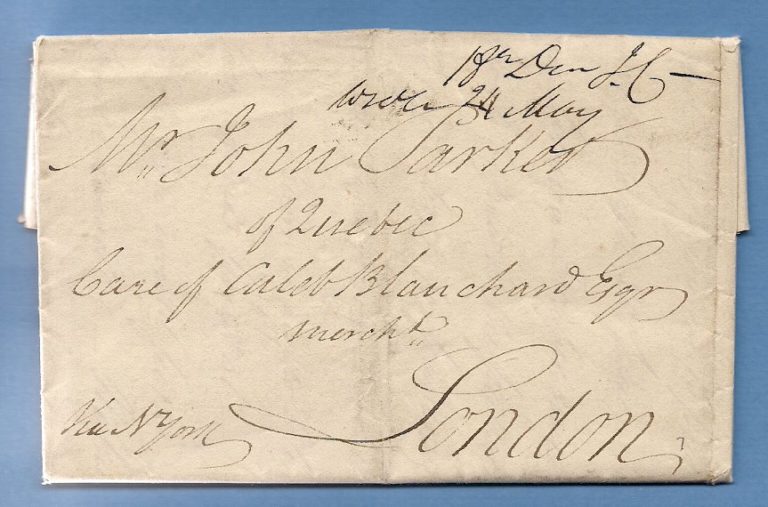 24 May
Mr. John Parker
of Quebec
Care of Caleb Blanchard Esqr
mercht.
Via N York
London